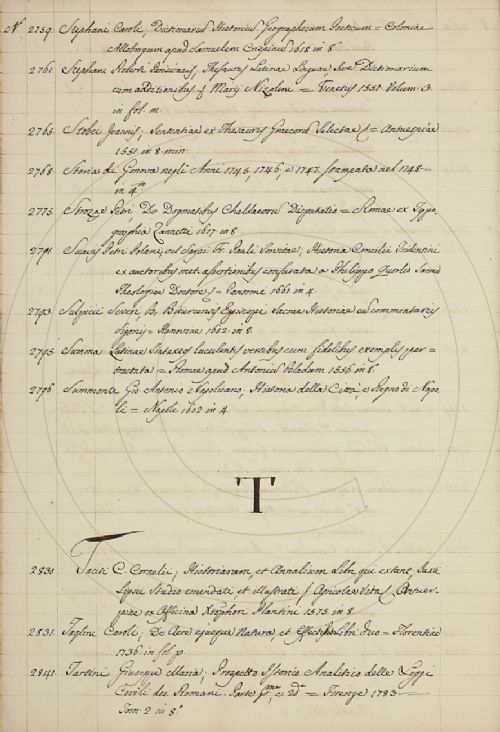 N.º 2759 Stephani Caroli, Dictionarius Historicus Geographicum Poeticum = Coloniae
Allobrogum apud Samuelem Crispinus 1618 in 8.º
2761 Stephani Roberti Parisiensis, Thesaurus Latinae Linguae Sive Dictionarium
cum additionibus Marij Nizolini = Venetiis 1551 Volum. 3
in fol. m.
2765 Stobei Joannis; Sententiae ex Thesauris Graecorum Selectae = Antuerpiae
1551 in 8 min.
2768 Storia di Genova negli Anni 1745, 1746, e 1747 formeata nel 1748
in 4.to
2775 Strozae Petri, De Dogmatibus Chaldaeorum Disputatio = Romae ex Typo=
graphia Zannetti 1617 in 8
2791 Suavis Petri Polani, vel Sarpi Fr. Pauli Servitae; Historia Concilii Tridentini
ex auctoribus met assertionibus confutata a Philippo Quorles Sacrae
Theologiae Doctore = Panormi 1661 in 4.
2793 Sulpicii Severi, B. Bituricensis Episcopi Sacrae Historiae cum commentariis
= Hannoviae 1602 in 8.
2795 Summa Latinae Sintaxeos luculentis versibus cum fidelibus exemplis per=
tractata = Romae apud Antonium Bladum 1556 in 8.
2796 Summonte Gio Antonio Napoletano, Historia della Città, e Regno di Napo=
li = Napoli 1602 in 4.
T
2830 Taciti C. Cornelii; Historiarum, et Annalium Libri qui extant, Justi
Lipsii Studio emendati et illustrati Agricolae Vita Antuer=
piae ex Officina Xtophori Plantini 1575 in 8.
2831 Taglini Caroli, De Aere ejusque Natura, et Effectibus Libri duo = Florentiae
1736 in fol. p.
2841 Tartini Giuseppe Maria; Prospetto Istorico Analitico delle Leggi
Civili dei Romani. Parte p.ma e 2.da = Firenze 1783
Tom. 2 in 8.º